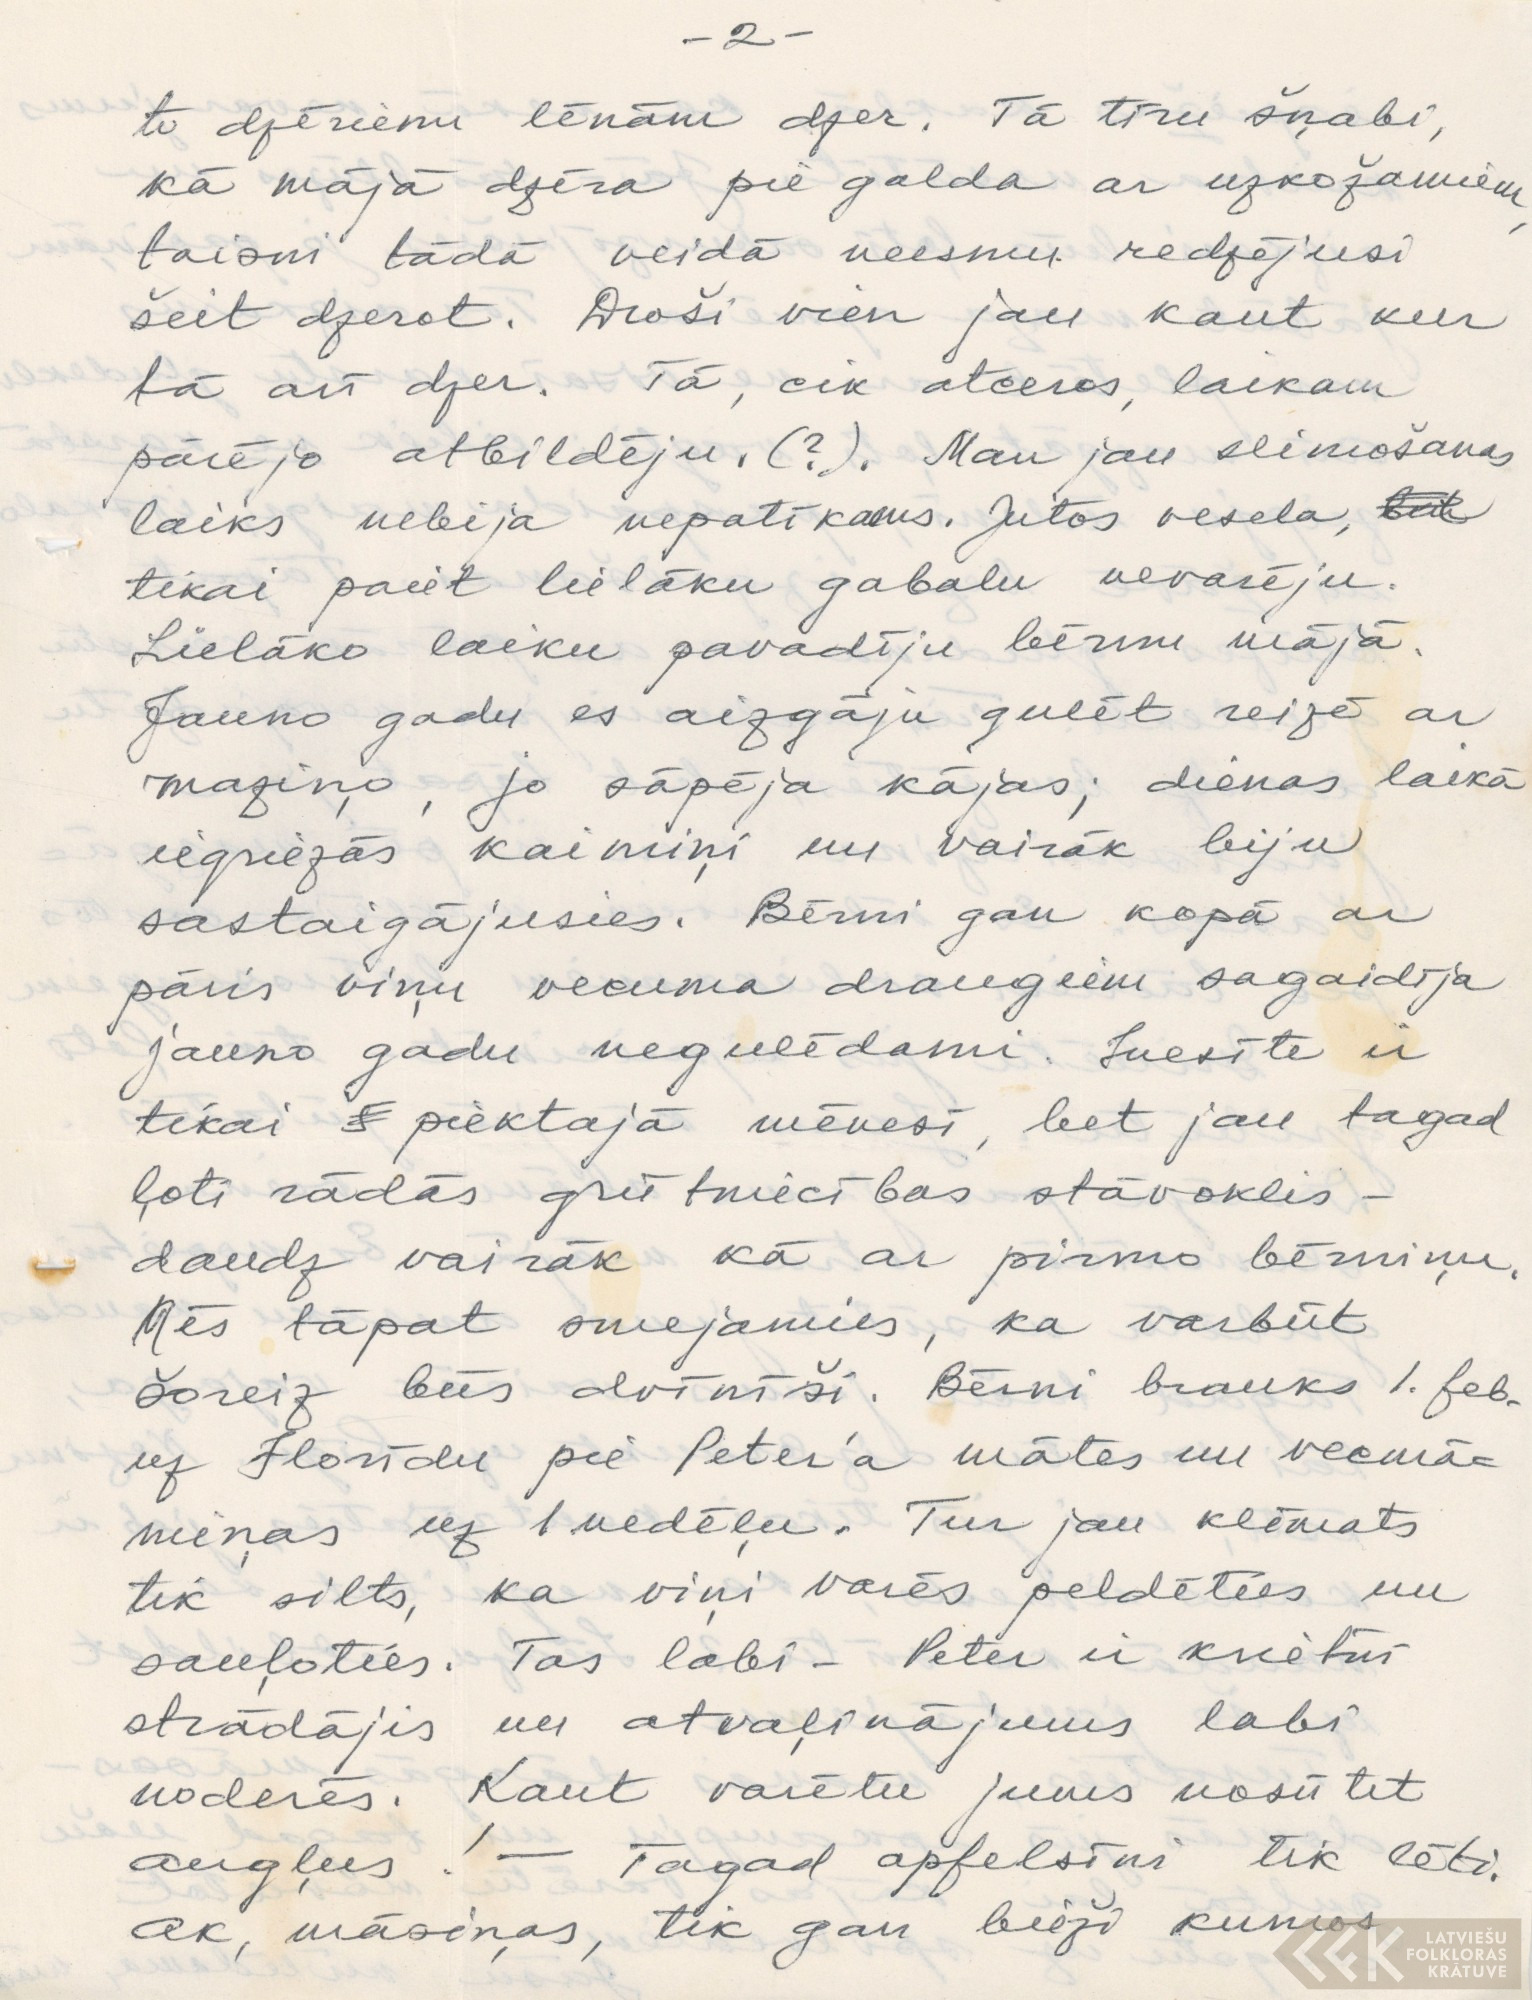 - 2 -
to dzērienu lēnām dzer. Tā tīru šņabi,
kā mājā dzēra pie galda ar uzkožamiem,
taisni tādā veidā neesmu redzējusi
šeit dzerot. Droši vien jau kaut kur
tā arī dzer. Tā, cik atceros, laikam
pārējo atbildēju. (?). Man jau slimošanas
laiks nebija nepatīkams. Jutos vesela,
tikai paiet lielāku gabalu nevarēju.
Lielāko laiku pavadīju bērnu mājā.
Jauno gadu es aizgāju gulēt reizē ar
maziņo, jo sāpēja kājas; dienas laikā
iegriezās kaimiņi un vairāk biju
sastaigājusies. Bērni gan kopā ar
pāris viņu vecuma draugiem sagaidīja
jauno gadu negulēdami. Inesīte ir
tikai 5 piektajā mēnesī, bet jau tagad
ļoti rādās grūtniecības stāvoklis -
daudz vairāk kā ar pirmo bērniņu.
Mēs tāpat smejamies, ka varbūt
šoreiz būs dvīnīši. Bērni brauks 1. feb.
uz Floridu pie Peter'a mātes un vecmā=
miņas uz 1 nedēļu. Tur jau klimats
tik silts, ka viņi varēs peldēties un
sauļoties. Tas labi - Peter ir krietni
strādājis un atvaļinājums labi
noderēs. Kaut varētu jums nosūtīt
augļus ! — Tagad apfelsīni tik lēti.
Ak, māsiņas, tik gan bieži kumos
LATVIEŠU
FOLKLORAS
KRĀTUVE